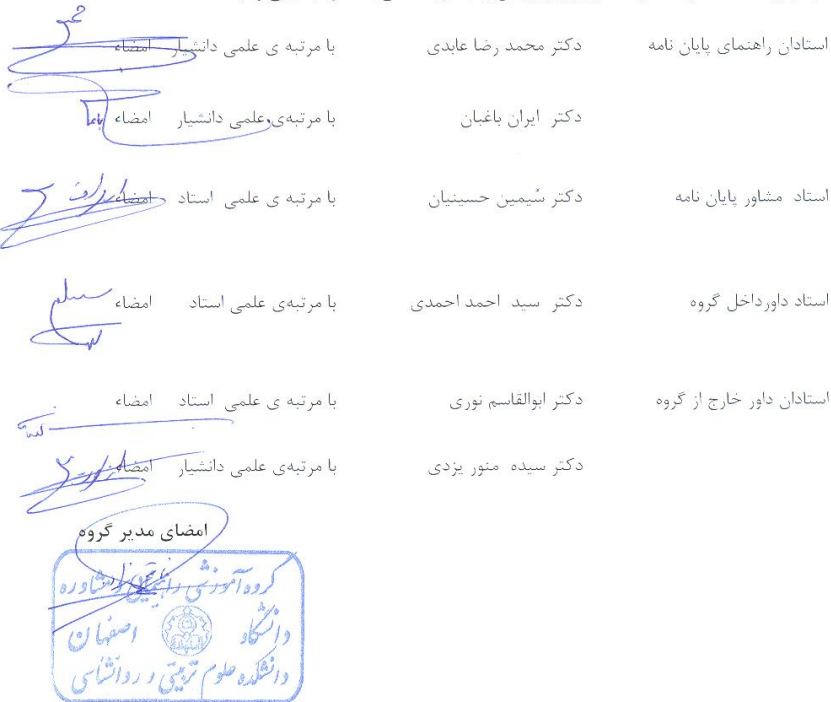 استادان راهنمای پایان نامه دکتر محمد رضا عابدی با مرتبه ی علمی دانشیار امضاء
دکتر ایران باغبان با مرتبه‌ی علمی دانشیار امضاء
استاد مشاور پایان نامه دکتر سیمین حسینیان با مرتبه ی علمی استاد امضاء
استاد داورداخل گروه دکتر سید احمد احمدی با مرتبه‌ی علمی استاد امضاء
استادان داور خارج از گروه دکتر ابوالقاسم نوری با مرتبه ی علمی استاد امضاء
دکتر سیده منور یزدی با مرتبه‌ی علمی دانشیار امضاء
امضای مدیر گروه
گروه آموزشی راهنمایی و مشاوره
دانشگاه اصفهان
دانشکده علوم تربیتی و روانشناسی